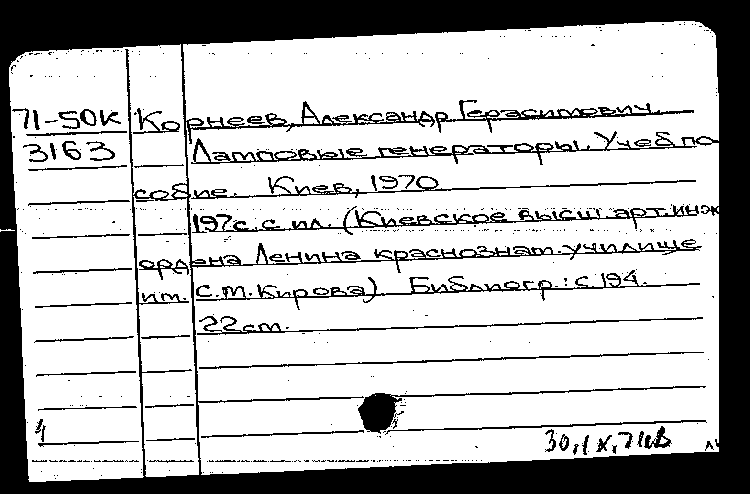 71-50К Корнеев, Александр Герасимович.
3163 Ламповые генераторы. Учеб по-
собие. Киев, 1970
197с. с ил. (Киевское высш. арт. инж
ордена Ленина краснознам. училище
им. С.М. Кирова). Библиогр.: с 194.
22см.
4